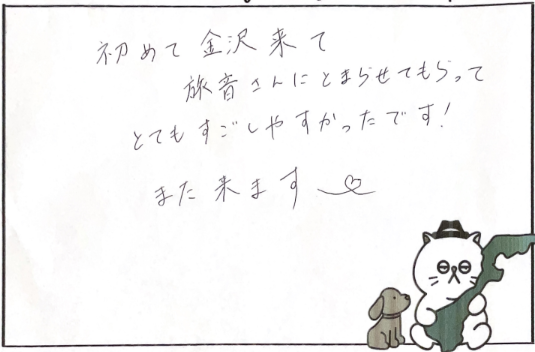 初めて金沢来て
旅音さんにとまらせてもらって
とてもすごしやすかったです!
また来ます♡